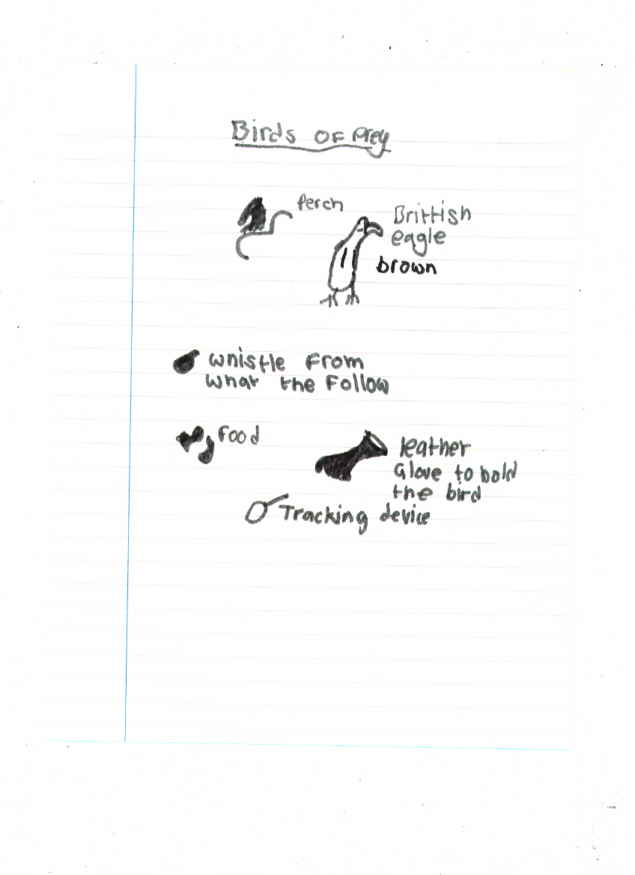 Birds OF Prey
Perch
Brittish
eagle
brown
whistle From
what the Follow
Food
leather
Glove to hold
the bird
Tracking device